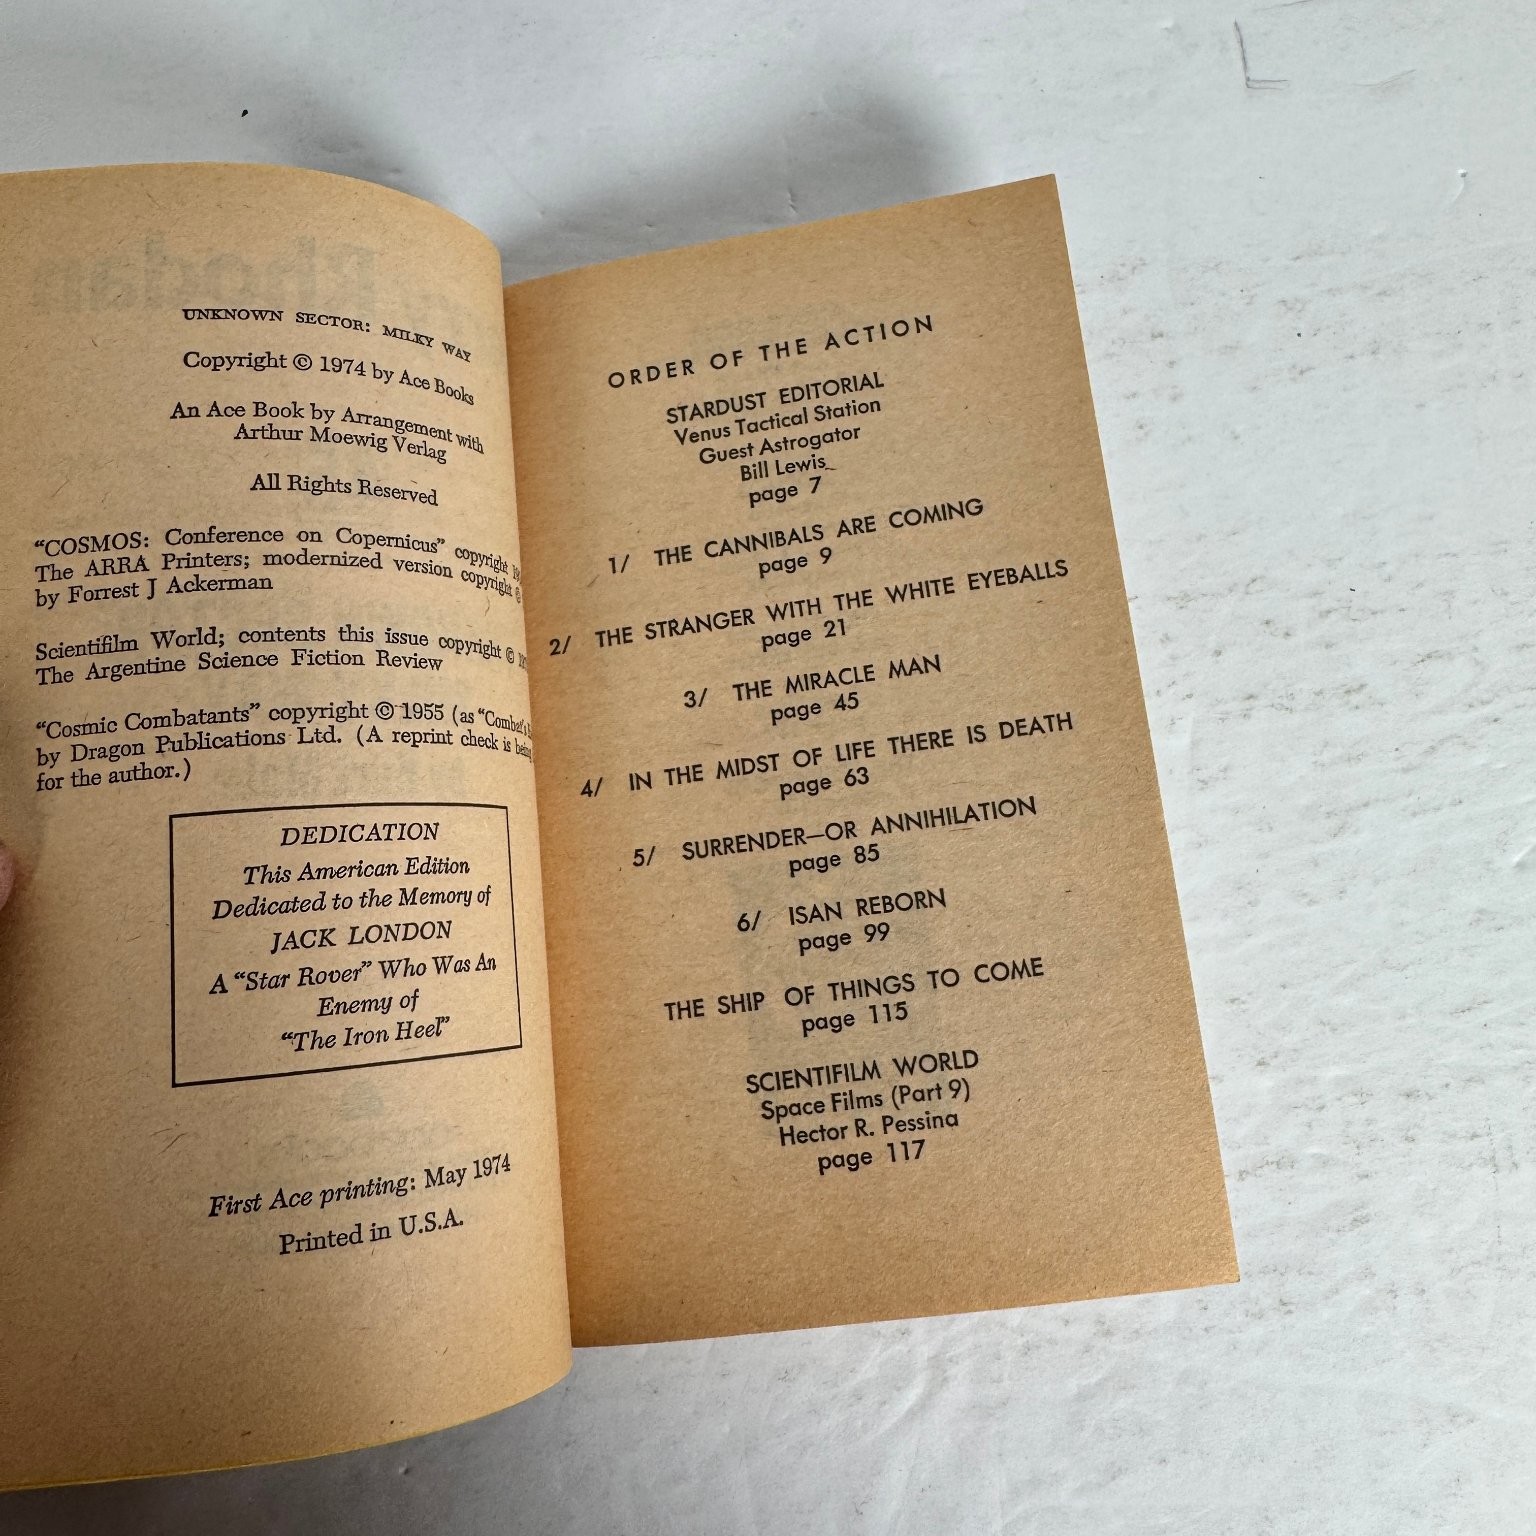 UNKNOWN SECTOR: MILKY WAY
Copyright © 1974 by Ace Books
An Ace Book by Arrangement with
Arthur Moewig Verlag
All Rights Reserved
“COSMOS: Conference on Copernicus” copyright
The ARRA Printers; modernized version copyright ©
by Forrest J Ackerman
Scientifilm World; contents this issue copyright ©
The Argentine Science Fiction Review
“Cosmic Combatants” copyright © 1955 (as “Combat's
by Dragon Publications Ltd. (A reprint check is being
for the author.)
DEDICATION
This American Edition
Dedicated to the Memory of
JACK LONDON
A “Star Rover” Who Was An
Enemy of
“The Iron Heel”
First Ace printing: May 1974
Printed in U.S.A.
ORDER OF THE ACTION
STARDUST EDITORIAL
Venus Tactical Station
Guest Astrogator
Bill Lewis
page 7
1/ THE CANNIBALS ARE COMING
page 9
2/ THE STRANGER WITH THE WHITE EYEBALLS
page 21
3/ THE MIRACLE MAN
page 45
4/ IN THE MIDST OF LIFE THERE IS DEATH
page 63
5/ SURRENDER—OR ANNIHILATION
page 85
6/ ISAN REBORN
page 99
THE SHIP OF THINGS TO COME
page 115
SCIENTIFILM WORLD
Space Films (Part 9)
Hector R. Pessina
page 117